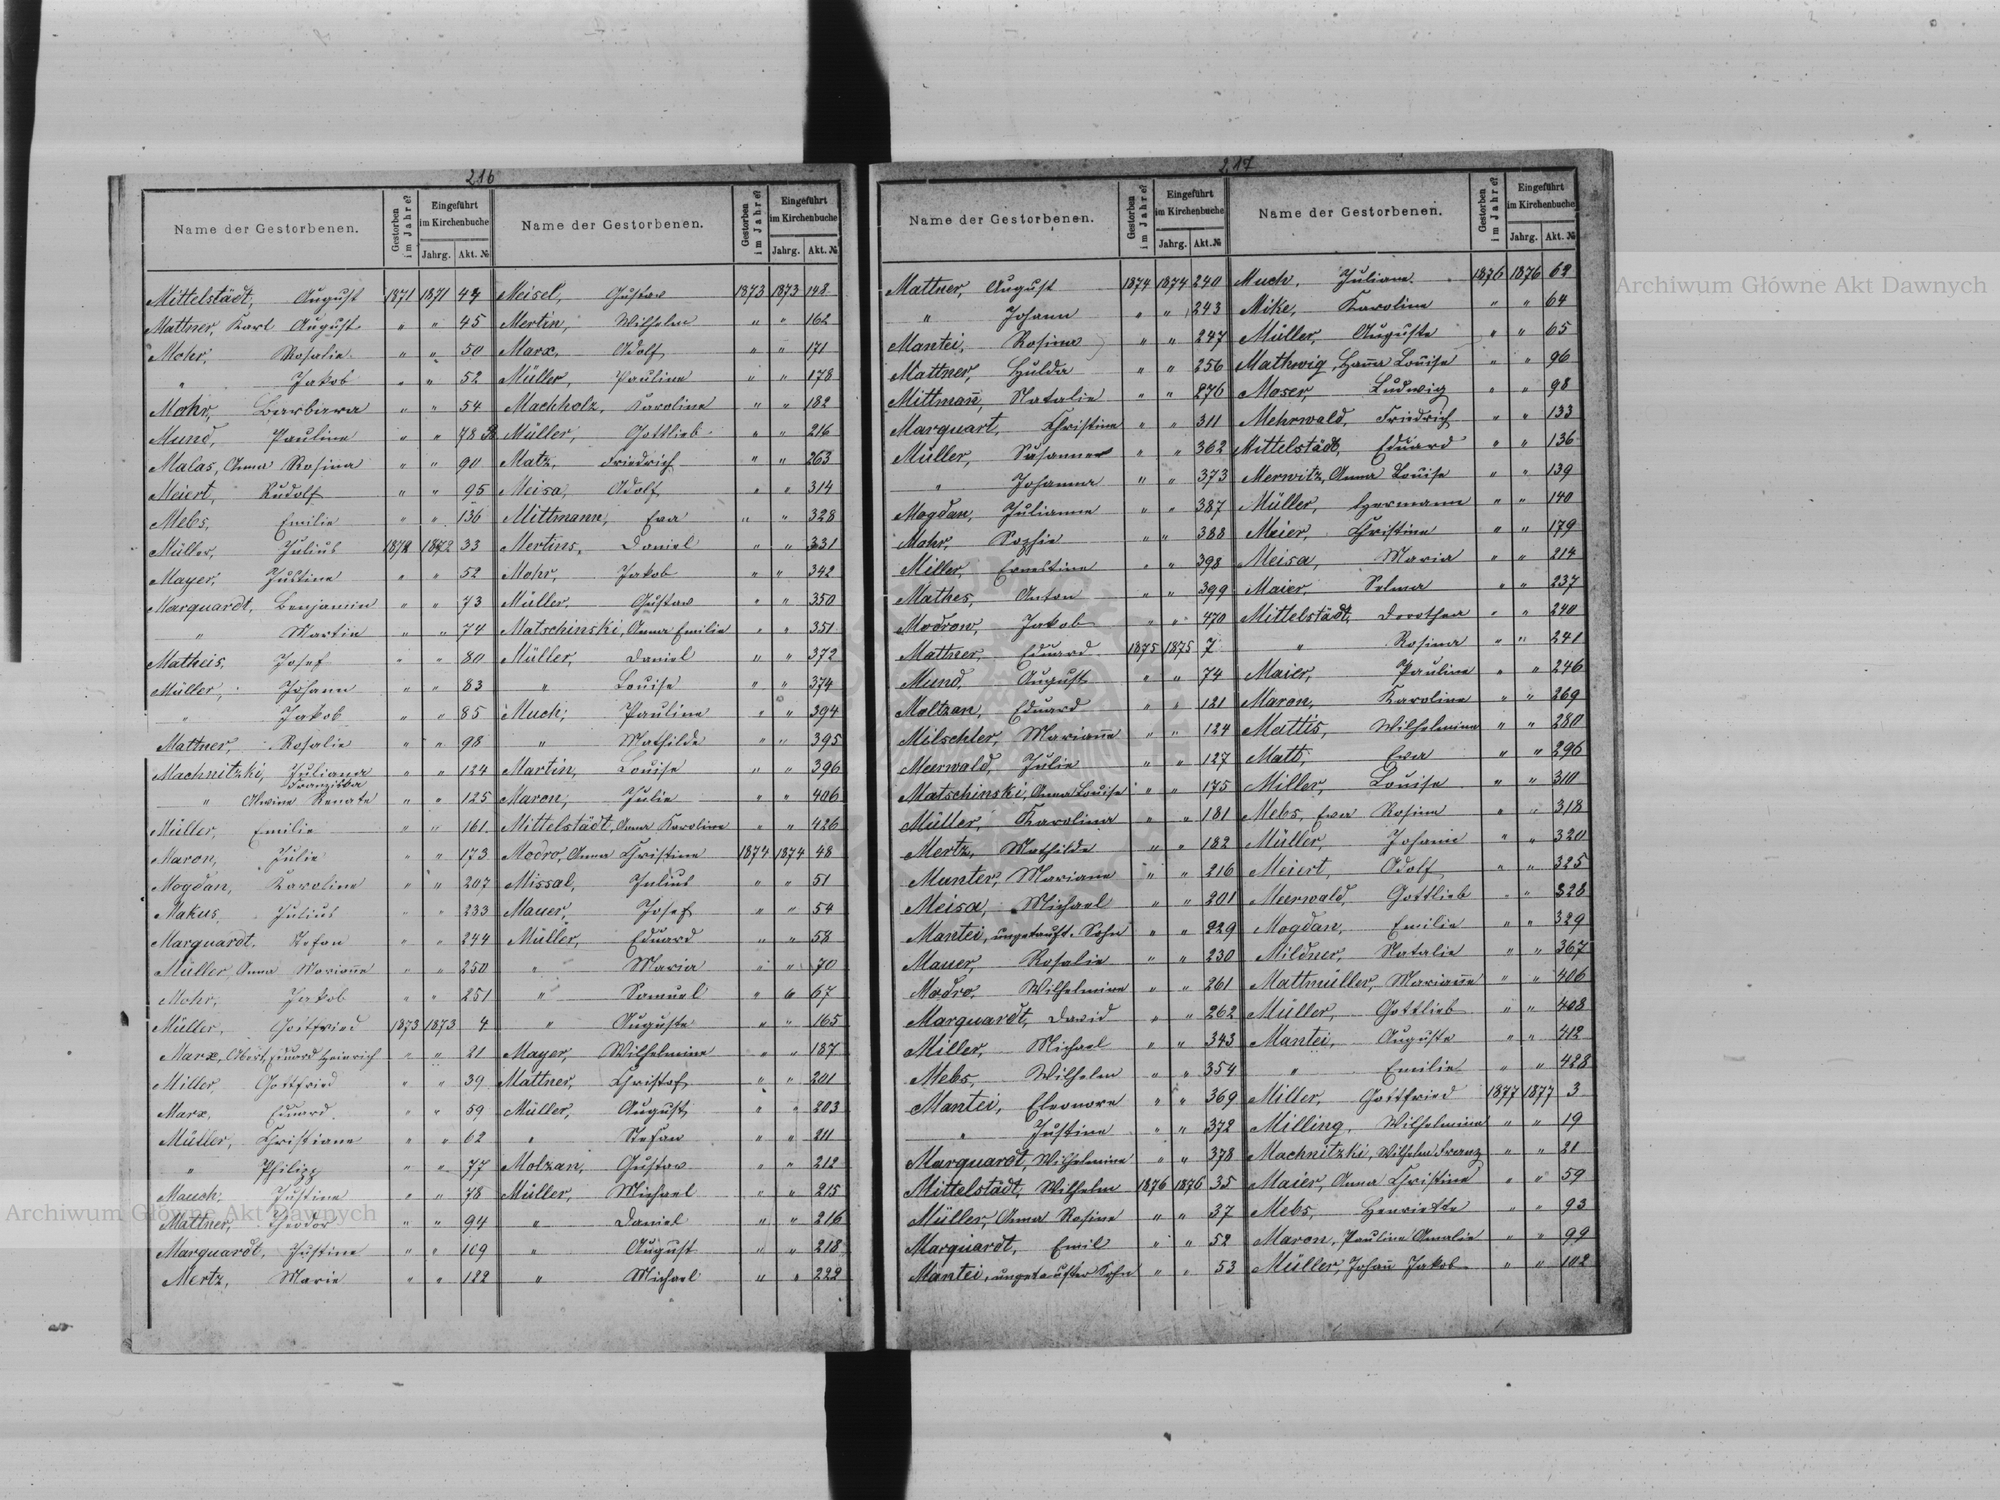 216
Name der Gestorbenen. Gestorben im Jahre? Eingeführt im Kirchenbuche Jahrg. Akt. №
Mittelstädt, August 1871 1871 44
Mattner, Karl August " " 45
Mohr, Rosalie " " 50
" Jakob " " 52
Mohr, Barbara " " 54
Mund, Pauline " " 78
Malas, Anna Rosina " " 90
Meiert, Rudolf " " 95
Mebs, Emilie " " 136
Müller, Julius 1872 1872 33
Mayer, Justine " " 52
Marquardt, Benjamin " " 73
" Martin " " 74
Matheis, Josef " " 80
Müller, Johann " " 83
" Jakob " " 85
Mattner, Rosalie " " 98
Machnitzki, Juliana Franziska " " 124
" Alwine Renate " " 125
Müller, Emilie " " 161
Maron, Julie " " 173
Mogdan, Karoline " " 207
Makus, Julius " " 233
Marquardt, Stefan " " 244
Müller, Anna Marianne " " 250
Mohr, Jakob " " 251
Müller, Gottfried 1873 1873 4
Marx, Albert, Eduard Heinrich " " 21
Miller, Gottfried " " 39
Marx, Eduard " " 59
Müller, Christiane " " 62
" Philipp " " 77
Mauch, Justine " " 78
Mattner, Theodor " " 94
Marquardt, Justine " " 109
Mertz, Marie " " 122
Name der Gestorbenen. Gestorben im Jahre? Eingeführt im Kirchenbuche Jahrg. Akt. №
Meisel, Gustav 1873 1873 148
Mertin, Wilhelm " " 162
Marx, Adolf " " 171
Müller, Pauline " " 178
Machholz, Karoline " " 182
Müller, Gottlieb " " 216
Matz, Friedrich " " 263
Meisa, Adolf " " 314
Mittmann, Eva " " 328
Mertins, Daniel " " 331
Mohr, Jakob " " 342
Müller, Gustav " " 350
Matschinski, Anna Emilie " " 351
Müller, Daniel " " 372
" Louise " " 374
Much, Pauline " " 394
" Mathilde " " 395
Martin, Louise " " 396
Maron, Julie " " 406
Mittelstädt, Anna Karoline " " 426
Modro, Anna Christine 1874 1874 48
Missal, Julius " " 51
Mauer, Josef " " 54
Müller, Eduard " " 58
" Maria " " 70
" Samuel " " 67
" Auguste " " 165
Mayer, Wilhelmine " " 187
Mattner, Christof " " 201
Müller, August " " 203
" Stefan " " 211
Molzan, Gustav " " 212
Müller, Michael " " 215
" Daniel " " 216
" August " " 218
" Michael " " 222
217
Name der Gestorbenen. Gestorben im Jahre? Eingeführt im Kirchenbuche Jahrg. Akt. №
Mattner, August 1874 1874 240
" Johann " " 243
Mantei, Rosina " " 247
Mattner, Hulda " " 256
Mittmañ, Natalie " " 276
Marquart, Christine " " 311
Müller, Susanne " " 362
" Johanna " " 373
Mogdan, Julianne " " 387
Mohr, Sophie " " 388
Miller, Ernestine " " 398
Mathes, Anton " " 399
Modrow, Jakob " " 470
Mattner, Eduard 1875 1875 7
Mund, August " " 74
Moltzan, Eduard " " 121
Milschler, Mariañe " " 124
Meerwald, Julie " " 127
Matschinski, Anna Louise " " 175
Müller, Karolina " " 181
Mertz, Mathilde " " 182
Munter, Mariane " " 216
Meisa, Michael " " 201
Mantei, ungetauft. Sohn " " 229
Mauer, Rosalie " " 230
Modro, Wilhelmine " " 261
Marquardt, David " " 262
Miller, Michael " " 343
Mebs, Wilhelm " " 354
Mantei, Eleonore " " 369
" Justine " " 372
Marquardt, Wilhelmine " " 378
Mittelstädt, Wilhelm 1876 1876 35
Müller, Anna Rosine " " 37
Marquardt, Emil " " 52
Mantei, ungetaufter Sohn " " 53
Name der Gestorbenen. Gestorben im Jahre? Eingeführt im Kirchenbuche Jahrg. Akt. №
Much, Juliane 1876 1876 62
Mike, Karoline " " 64
Müller, Auguste " " 65
Mathwig, Hañа Louise " " 96
Moser, Ludwig " " 98
Mehrwald, Friedrich " " 133
Mittelstädt, Eduard " " 136
Merwitz, Anna Louise " " 139
Müller, Hermann " " 140
Meier, Christine " " 179
Meisa, Maria " " 214
Maier, Selma " " 237
Mittelstädt, Dorothea " " 240
" Rosina " " 241
Maier, Pauline " " 246
Maron, Karoline " " 269
Mattis, Wilhelmine " " 280
Matt, Eva " " 296
Miller, Louise " " 310
Mebs, Eva Rosine " " 318
Müller, Johann " " 320
Meiert, Adolf " " 325
Meerwald, Gottlieb " " 328
Mogdan, Emilie " " 329
Mildner, Natalie " " 367
Mathmüller, Mariañe " " 406
Müller, Gottlieb " " 408
Mantei, Auguste " " 412
" Emilie " " 428
Miller, Gottfried 1877 1877 3
Milling, Wilhelmine " " 19
Machnitzki, Wilhelm Franz " " 21
Maier, Anna Christine " " 59
Mebs, Henriette " " 93
Maron, Pauline Amalie " " 99
Müller, Johañ Jakob " " 102
Archiwum Główne Akt Dawnych
Archiwum Główne Akt Dawnych